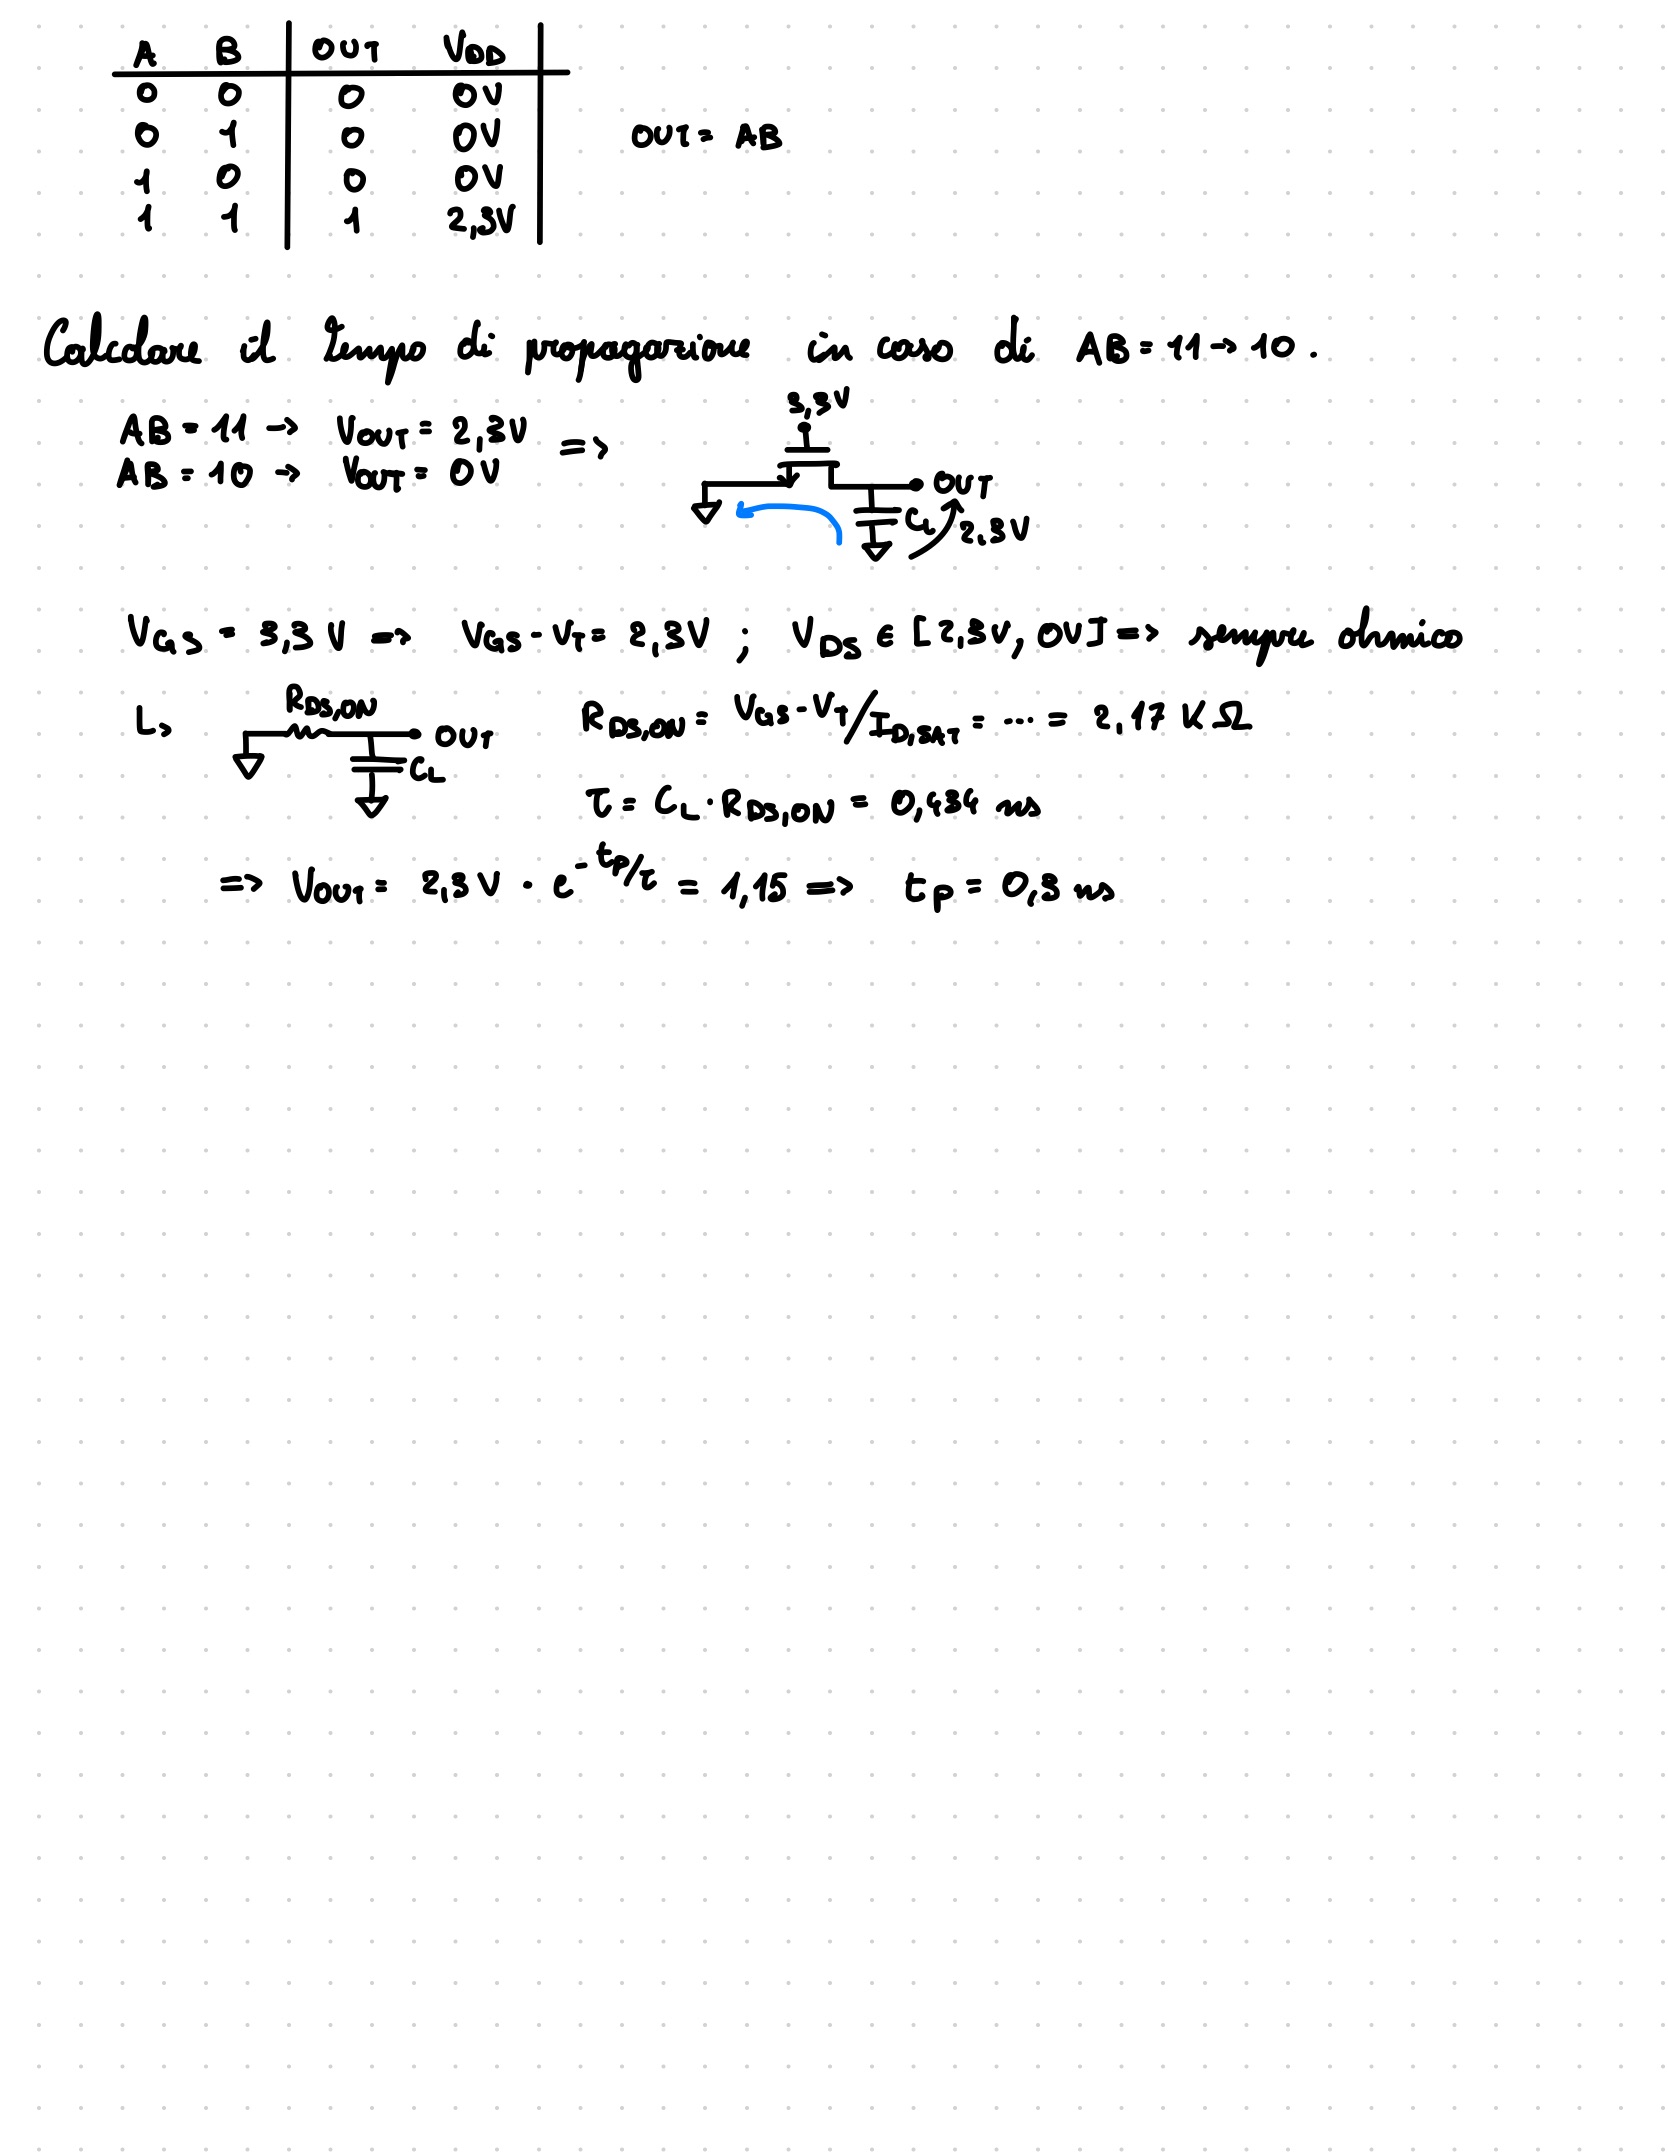 A B OUT VDD
0 0 0 0V
0 1 0 0V
1 0 0 0V
1 1 1 2,3V
OUT = AB
Calcolare il tempo di propagazione in caso di AB = 11 → 10 .
AB = 11 → VOUT = 2,3V
AB = 10 → VOUT = 0V
=>
3,3V
OUT
CL
2,3V
VGS = 3,3 V => VGS - VT = 2,3V ; VDS ∈ [2,3V, 0V] => sempre ohmico
L>
RDS,ON
OUT
CL
RDS,ON = VGS - VT / ID,SAT = ... = 2,17 KΩ
τ = CL · RDS,ON = 0,434 ns
=> VOUT = 2,3V · e^-tp/τ = 1,15 => tp = 0,3 ns